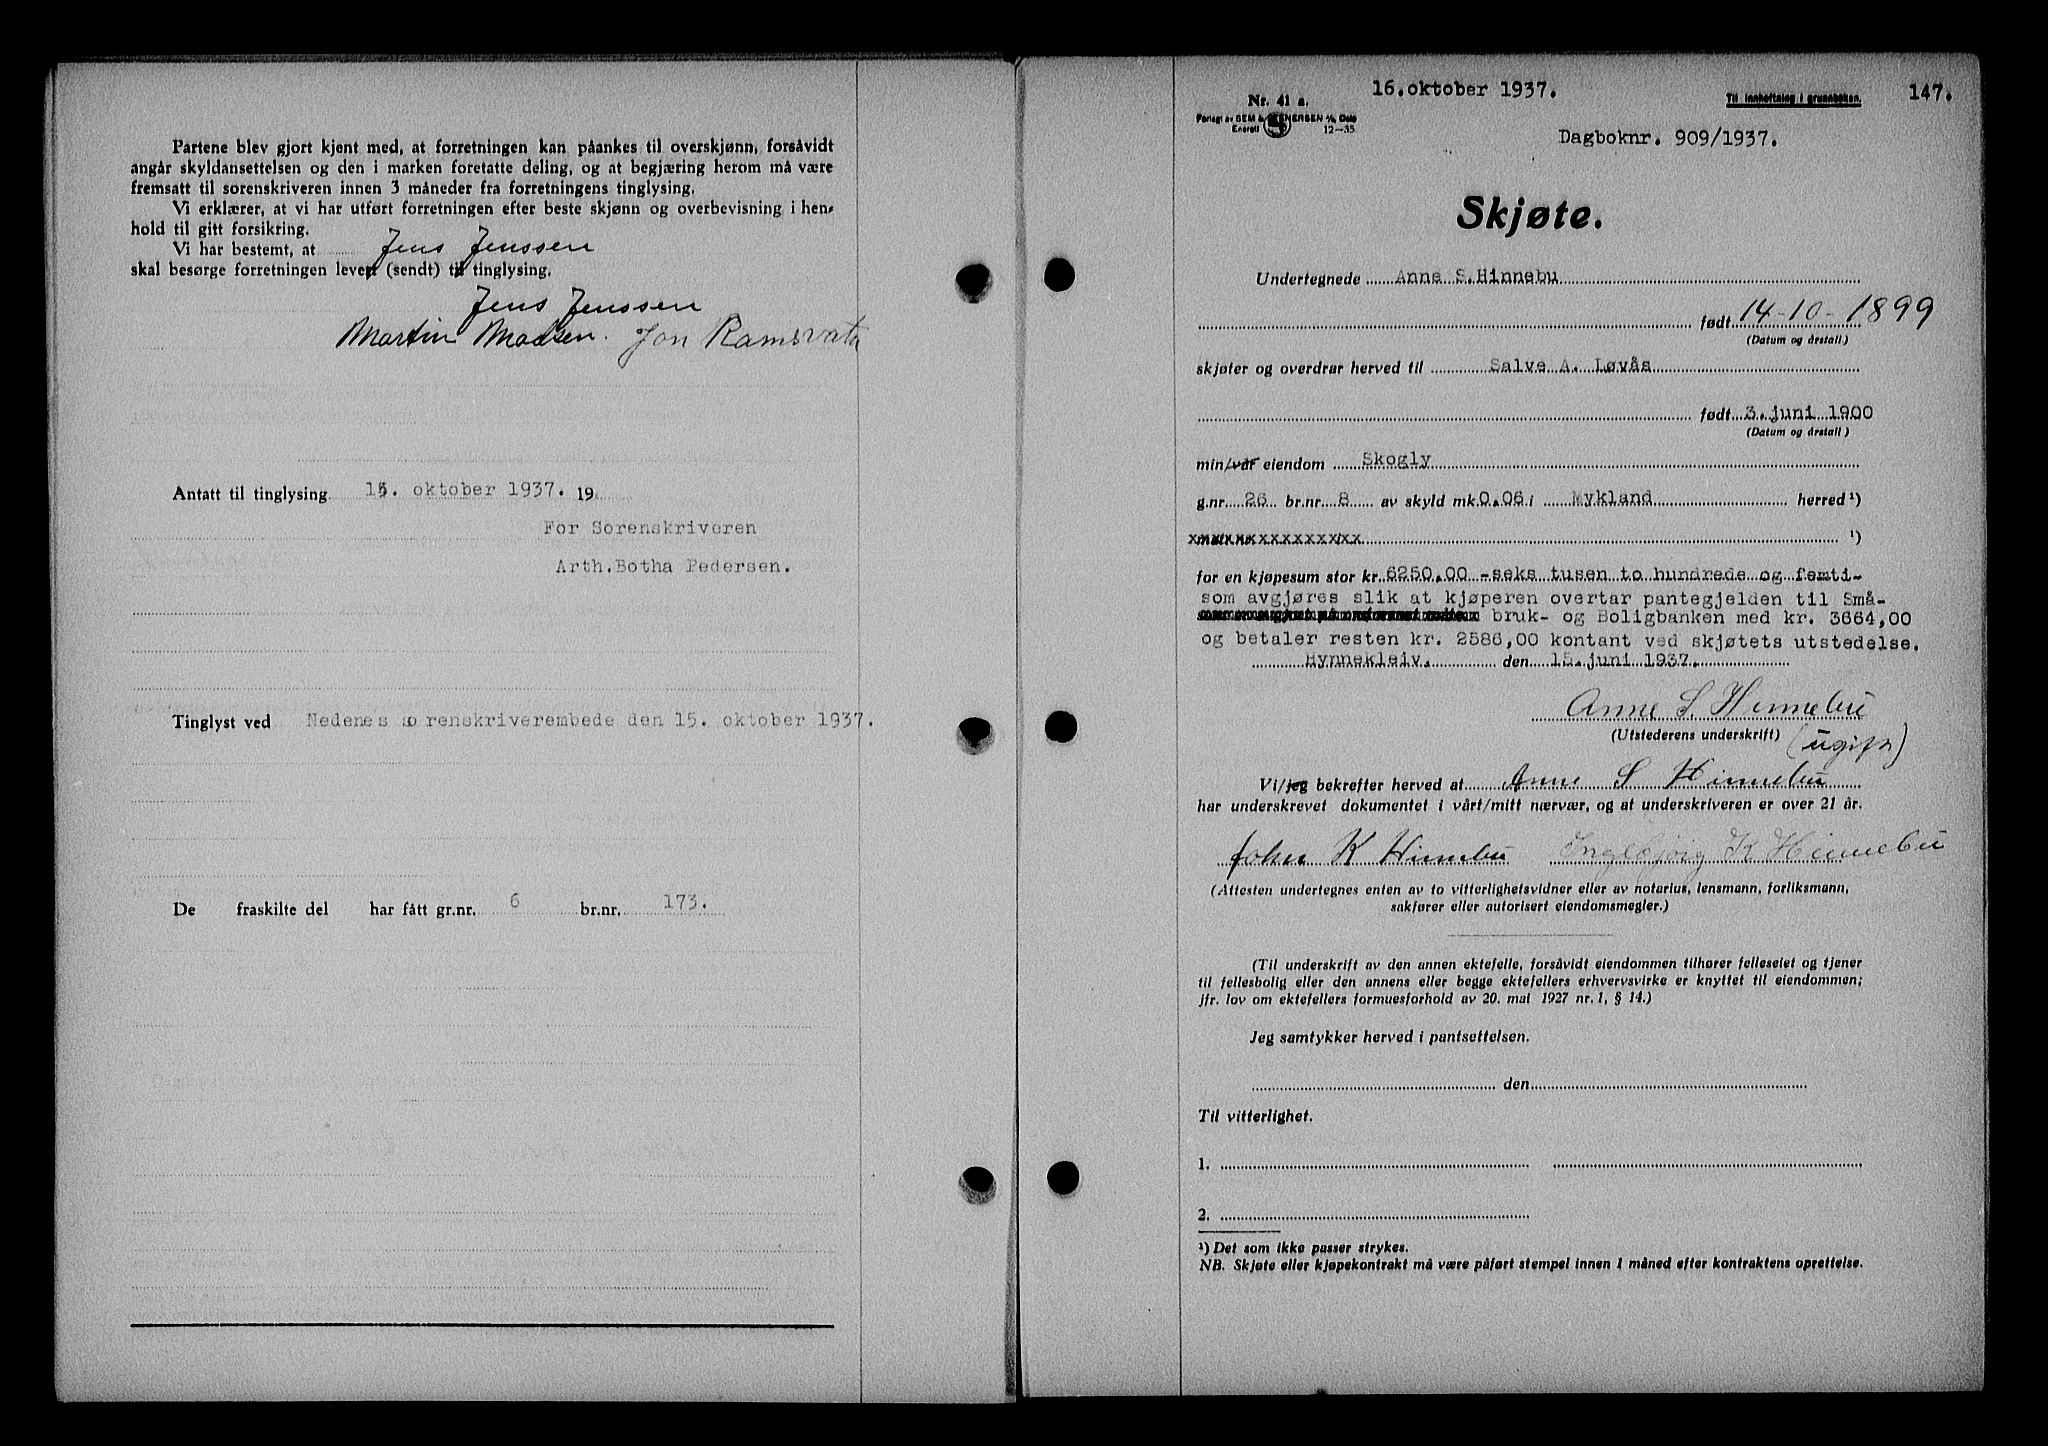 Partene blev gjort kjent med, at forretningen kan påankes til overskjønn, forsåvidt
angår skyldansettelsen og den i marken foretatte deling, og at begjæring herom må være
fremsatt til sorenskriveren innen 3 måneder fra forretningens tinglysing.
Vi erklærer, at vi har utført forretningen efter beste skjønn og overbevisning i hen-
hold til gitt forsikring.
Vi har bestemt, at Jens Jenssen
skal besørge forretningen levert (sendt) til tinglysing.
Jens Jenssen
Martin Madsen. Jon Ramsvatn
Antatt til tinglysing 15. oktober 1937. 19
For Sorenskriveren
Arth.Botha Pedersen.
Tinglyst ved Nedenes sorenskriverembede den 15. oktober 1937.
De fraskilte del har fått gr.nr. 6 br.nr. 173.
16.oktober 1937.
147.
Nr. 41 a.
Til innheftning i grunnboken.
Forlagt av SEM & STENERSEN A/S, Oslo
Enerett 12-35
Dagboknr. 909/1937.
Skjøte.
Undertegnede Anne S.Hinnebu
født 14-10-1899
(Datum og årstall)
skjøter og overdrar herved til Salve A. Løvås
født 3.juni 1900
(Datum og årstall)
min/vår eiendom Skogly
g.nr 26 br.nr 8 av skyld mk. 0.06 i Mykland herred ¹)
xxxxxxxxxxxxxxxxx ¹)
for en kjøpesum stor kr. 6250.00 -seks tusen to hundrede og femti-
som avgjøres slik at kjøperen overtar pantegjelden til Små-
bruk- og Boligbanken med kr. 3664,00
og betaler resten kr. 2586,00 kontant ved skjøtets utstedelse.
Hynnekleiv. den 15.juni 1937.
Anne S. Hinnebu
(Utstederens underskrift) (ugift)
Vi/jeg bekrefter herved at Anne S Hinnebu
har underskrevet dokumentet i vårt/mitt nærvær, og at underskriveren er over 21 år.
John K Hinnebu Ingebjørg K Hinnebu
(Attesten undertegnes enten av to vitterlighetsvidner eller av notarius, lensmann, forliksmann,
sakfører eller autorisert eiendomsmegler.)
(Til underskrift av den annen ektefelle, forsåvidt eiendommen tilhører felleseiet og tjener
til fellesbolig eller den annens eller begge ektefellers erhvervsvirke er knyttet til eiendommen;
jfr. lov om ektefellers formuesforhold av 20. mai 1927 nr. 1, § 14.)
Jeg samtykker herved i pantsettelsen.
den
Til vitterlighet.
1.
2.
¹) Det som ikke passer strykes.
NB. Skjøte eller kjøpekontrakt må være påført stempel innen 1 måned efter kontraktens oprettelse.